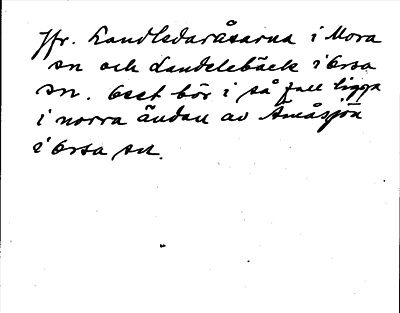 Jfr. Landledaråsarna i Mora
sn och Landelebäck i Orsa
sn. Osst bör i så fall ligga
i norra ändan av Amåsjön
i Orsa sn.